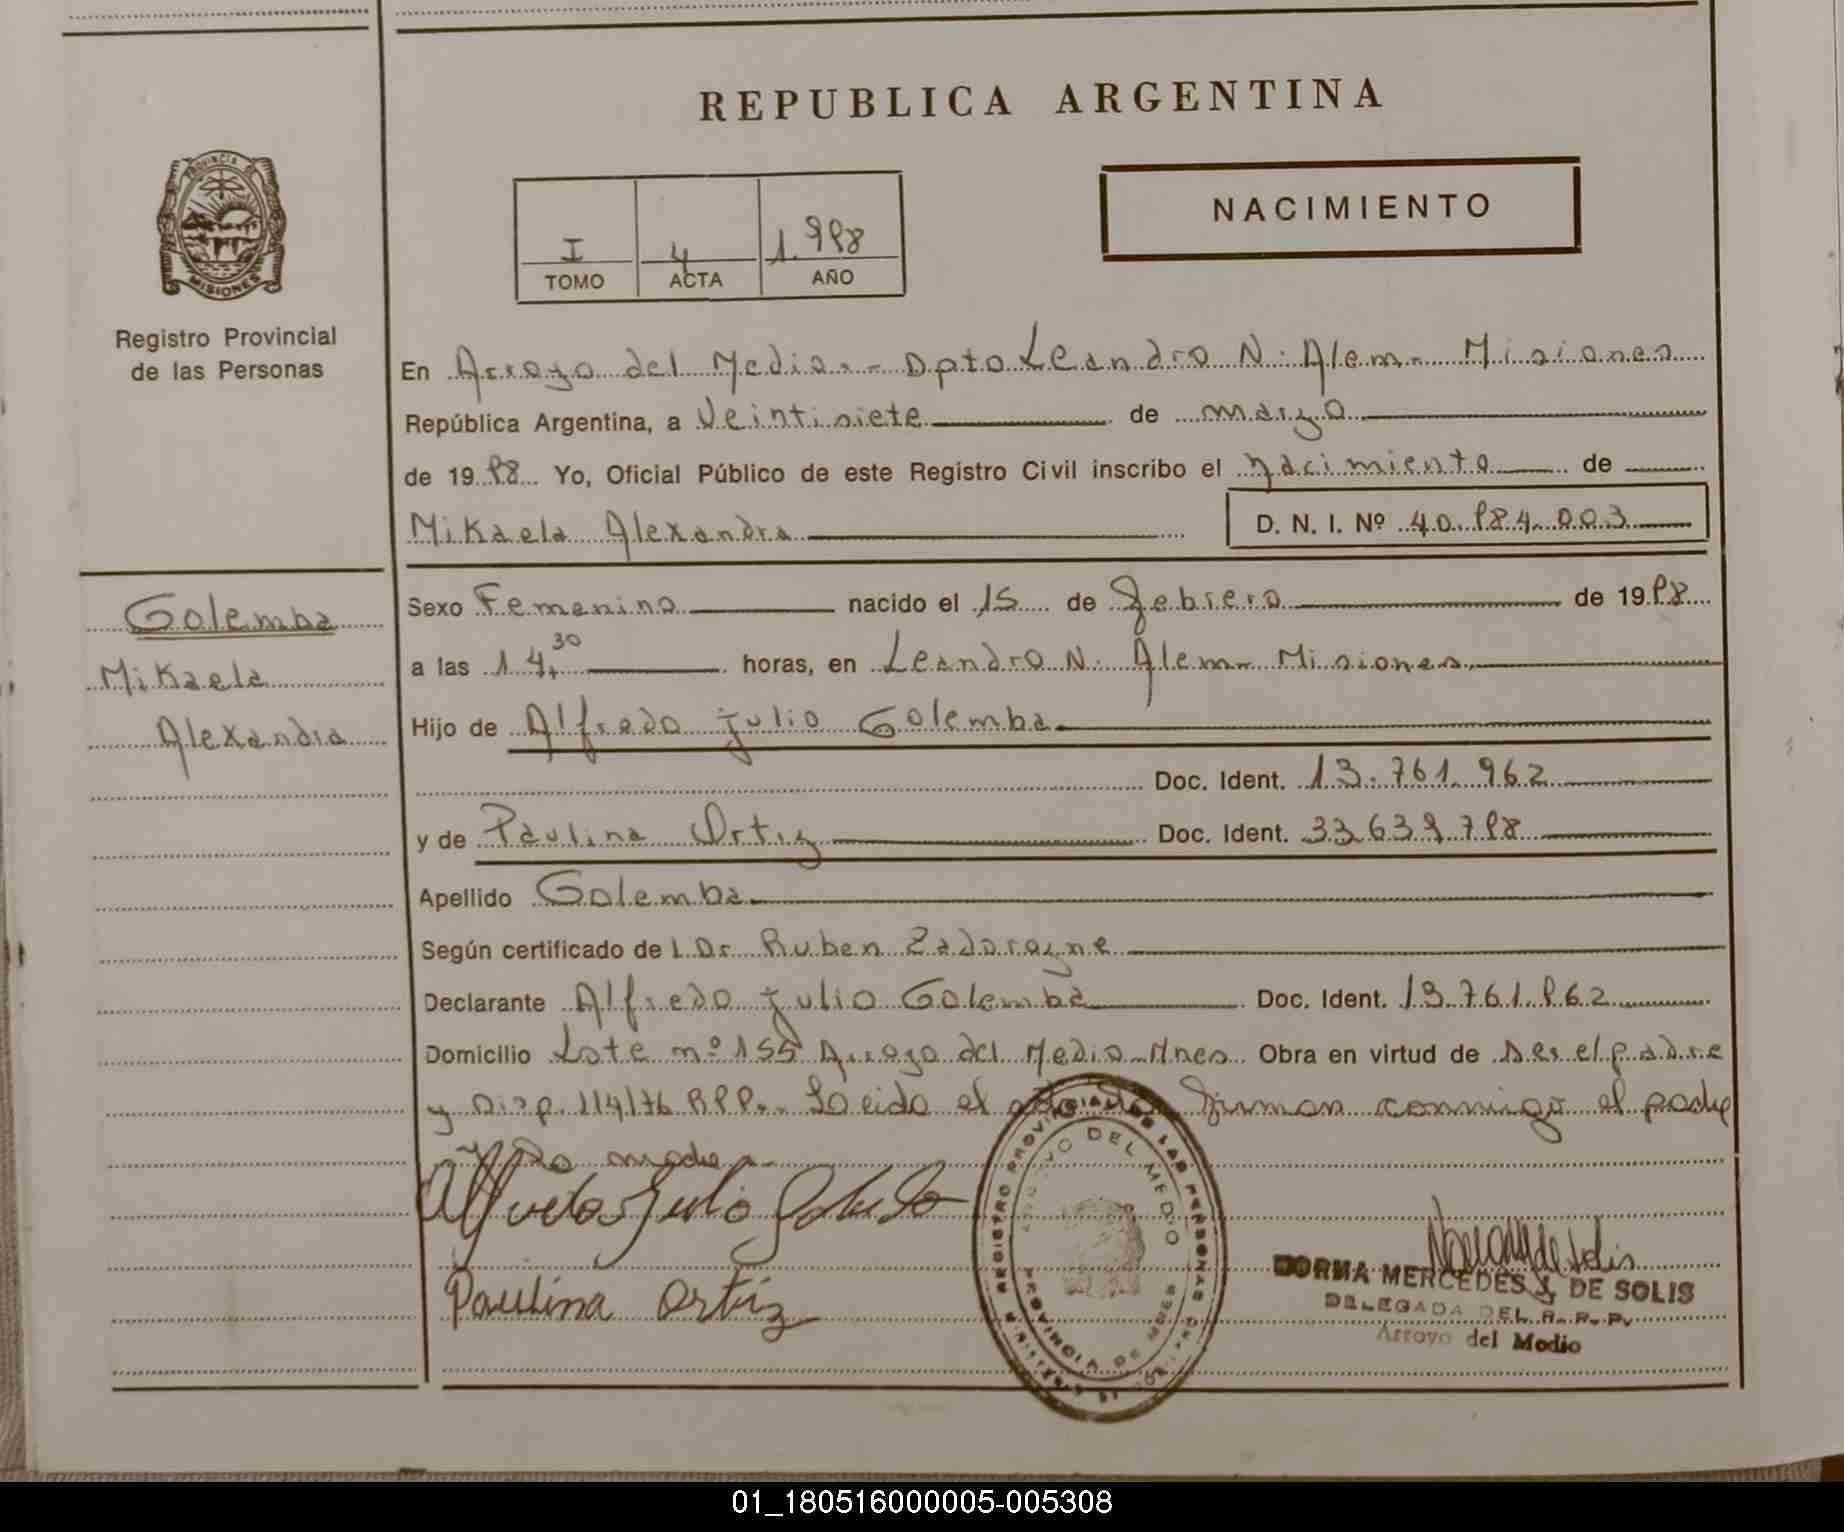 REPUBLICA ARGENTINA
NACIMIENTO
I 4 1.998
TOMO ACTA AÑO
PROVINCIA
MISIONES
Registro Provincial
de las Personas
En Arroyo del Medio.- Dpto Leandro N. Alem- Misiones
República Argentina, a Veintisiete de marzo
de 1998 Yo, Oficial Público de este Registro Civil inscribo el Nacimiento de
Mikaela Alexandra D. N. I. Nº 40.984.003
Golemba
Mikaela
Alexandra
Sexo Femenino nacido el 15 de Febrero de 1998
a las 14,30 horas, en Leandro N. Alem- Misiones
Hijo de Alfredo julio Golemba
Doc. Ident. 13.761.962
y de Paulina Ortiz Doc. Ident. 33.639.798
Apellido Golemba
Según certificado de l Dr Ruben Zadorozne
Declarante Alfredo julio Golemba Doc. Ident. 13.761.962
Domicilio Lote nº 155 Arroyo del Medio-Mnes Obra en virtud de ser el padre
y Disp. 114/76 RPP.- Leida el acta la firman conmigo el padre
y la madre.-
Alfredo Julio Golemba
Paulina Ortiz
REGISTRO PROVINCIAL DE LAS PERSONAS
ARROYO DEL MEDIO
PROVINCIA DE MISIONES
NORMA MERCEDES J. DE SOLIS
DELEGADA DEL R. P. P.
Arroyo del Medio
01_180516000005-005308